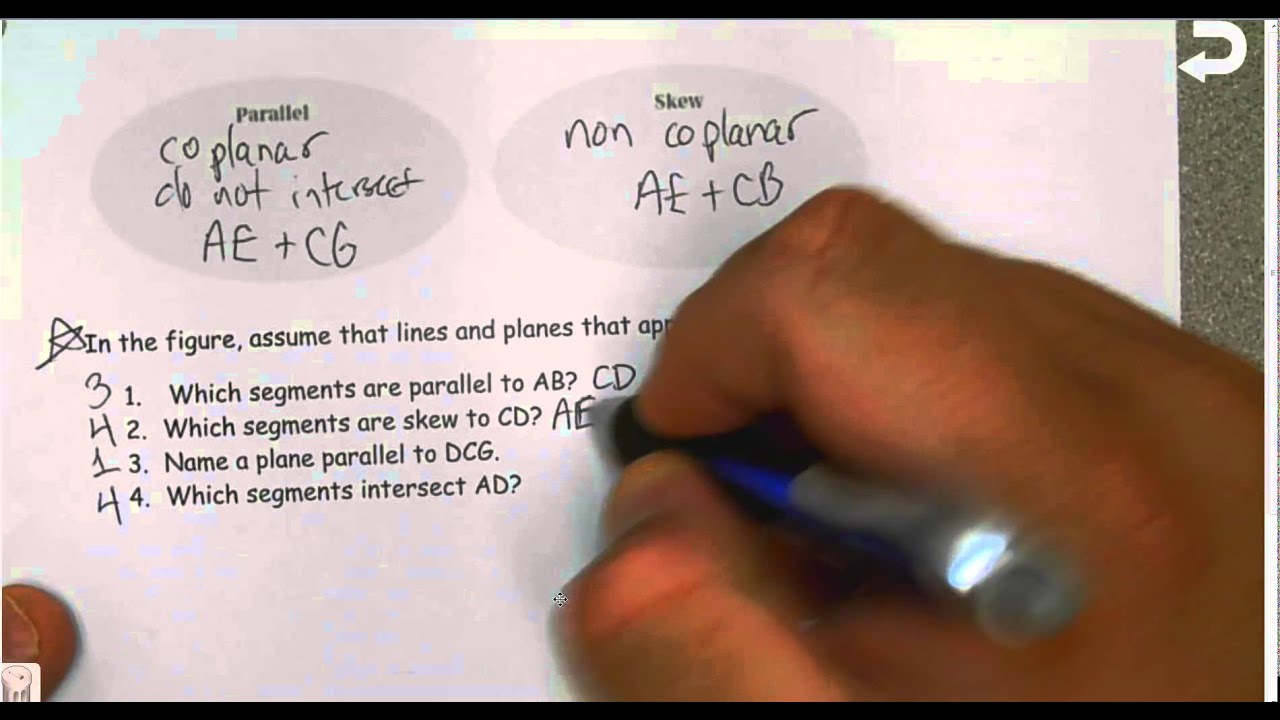 Parallel
coplanar
do not intersect
AE + CG
Skew
non coplanar
AE + CB
In the figure, assume that lines and planes that
3 1. Which segments are parallel to AB? CD
4 2. Which segments are skew to CD? AE
1 3. Name a plane parallel to DCG.
4 4. Which segments intersect AD?